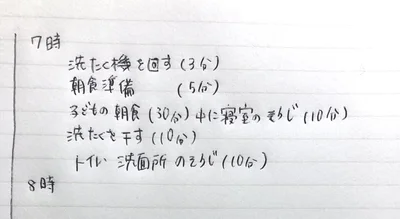 7時
洗たく機を回す(3分)
朝食準備 (5分)
子どもの朝食(30分)中に寝室のそうじ(10分)
洗たくを干す(10分)
トイレ 洗面所のそうじ(10分)
8時